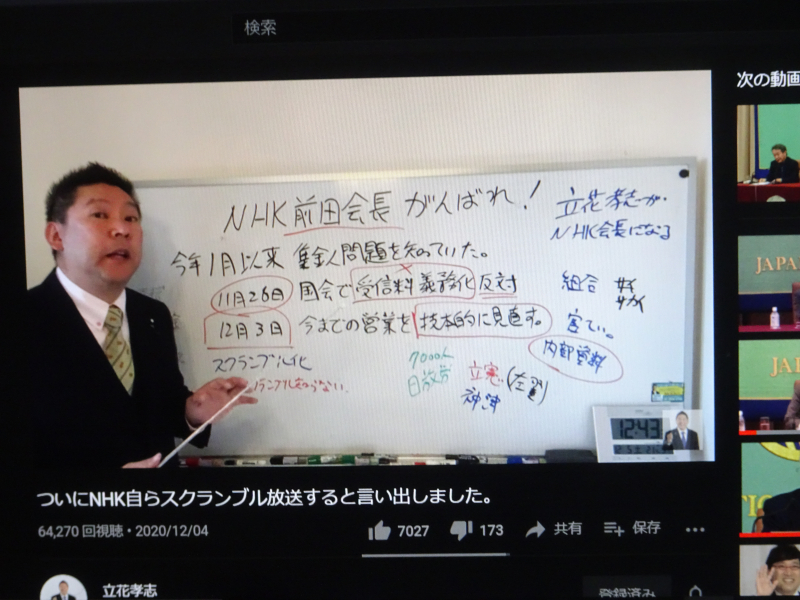 検索
次の動画
NHK前田会長がんばれ!
立花孝志が
NHK会長になる
今年1月以来 集金人問題を知っていた。
11月26日 国会で受信料義務化反対
組合
12月3日 今までの営業を抜本的に見直す。
内部資料
スクランブル化
7000人
日放労
立憲(左翼)
神津
12:43
JAPA
JAPA
ついにNHK自らスクランブル放送すると言い出しました。
64,270 回視聴・2020/12/04
7027
173
共有
保存
立花孝志
登録済み